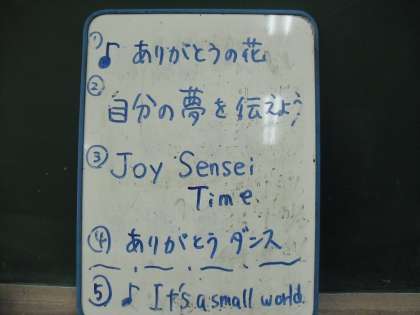 ① ♪ ありがとうの花
② 自分の夢を伝えよう
③ Joy Sensei
Time
④ ありがとうダンス
⑤ ♪ It's a small world.